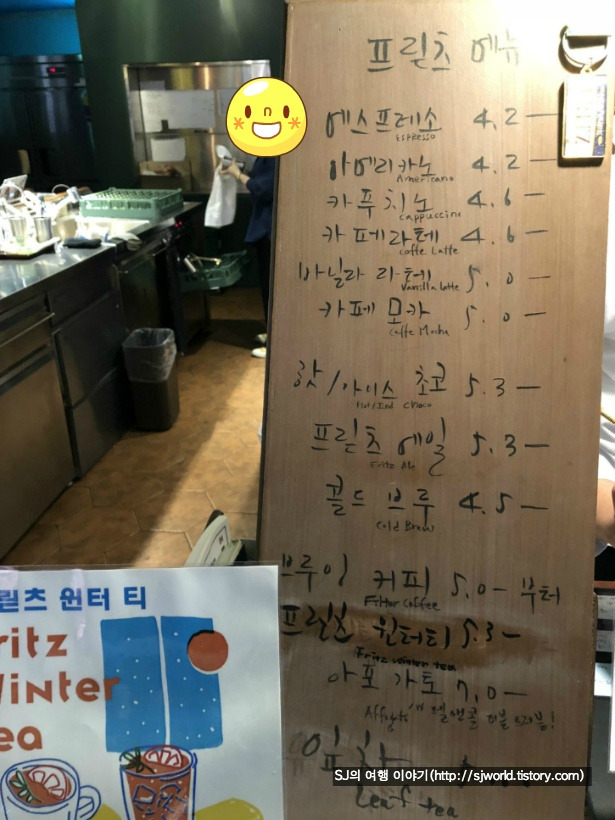 프릳츠 메뉴
에스프레소 4.2 —
Espresso
아메리카노 4.2 —
Americano
카푸치노 4.6 —
cappuccino
카페라떼 4.6 —
Coffe Latte
바닐라 라떼 5.0 —
Vanilla latte
카페 모카 5.0 —
Caffe Mocha
핫/아이스 초코 5.3 —
Hot/Iced Choco
프릳츠 에일 5.3 —
Fritz Ale
콜드 브루 4.5 —
Cold Brew
브루잉 커피 5.0 — 부터
Filter Coffee
프릳츠 윈터티 5.3 —
Fritz winter tea
아포가토 7.0 —
Affogato
잎차
Leaf tea
릳츠 윈터 티
ritz
Winter
ea
SJ의 여행 이야기(http://sjworld.tistory.com)